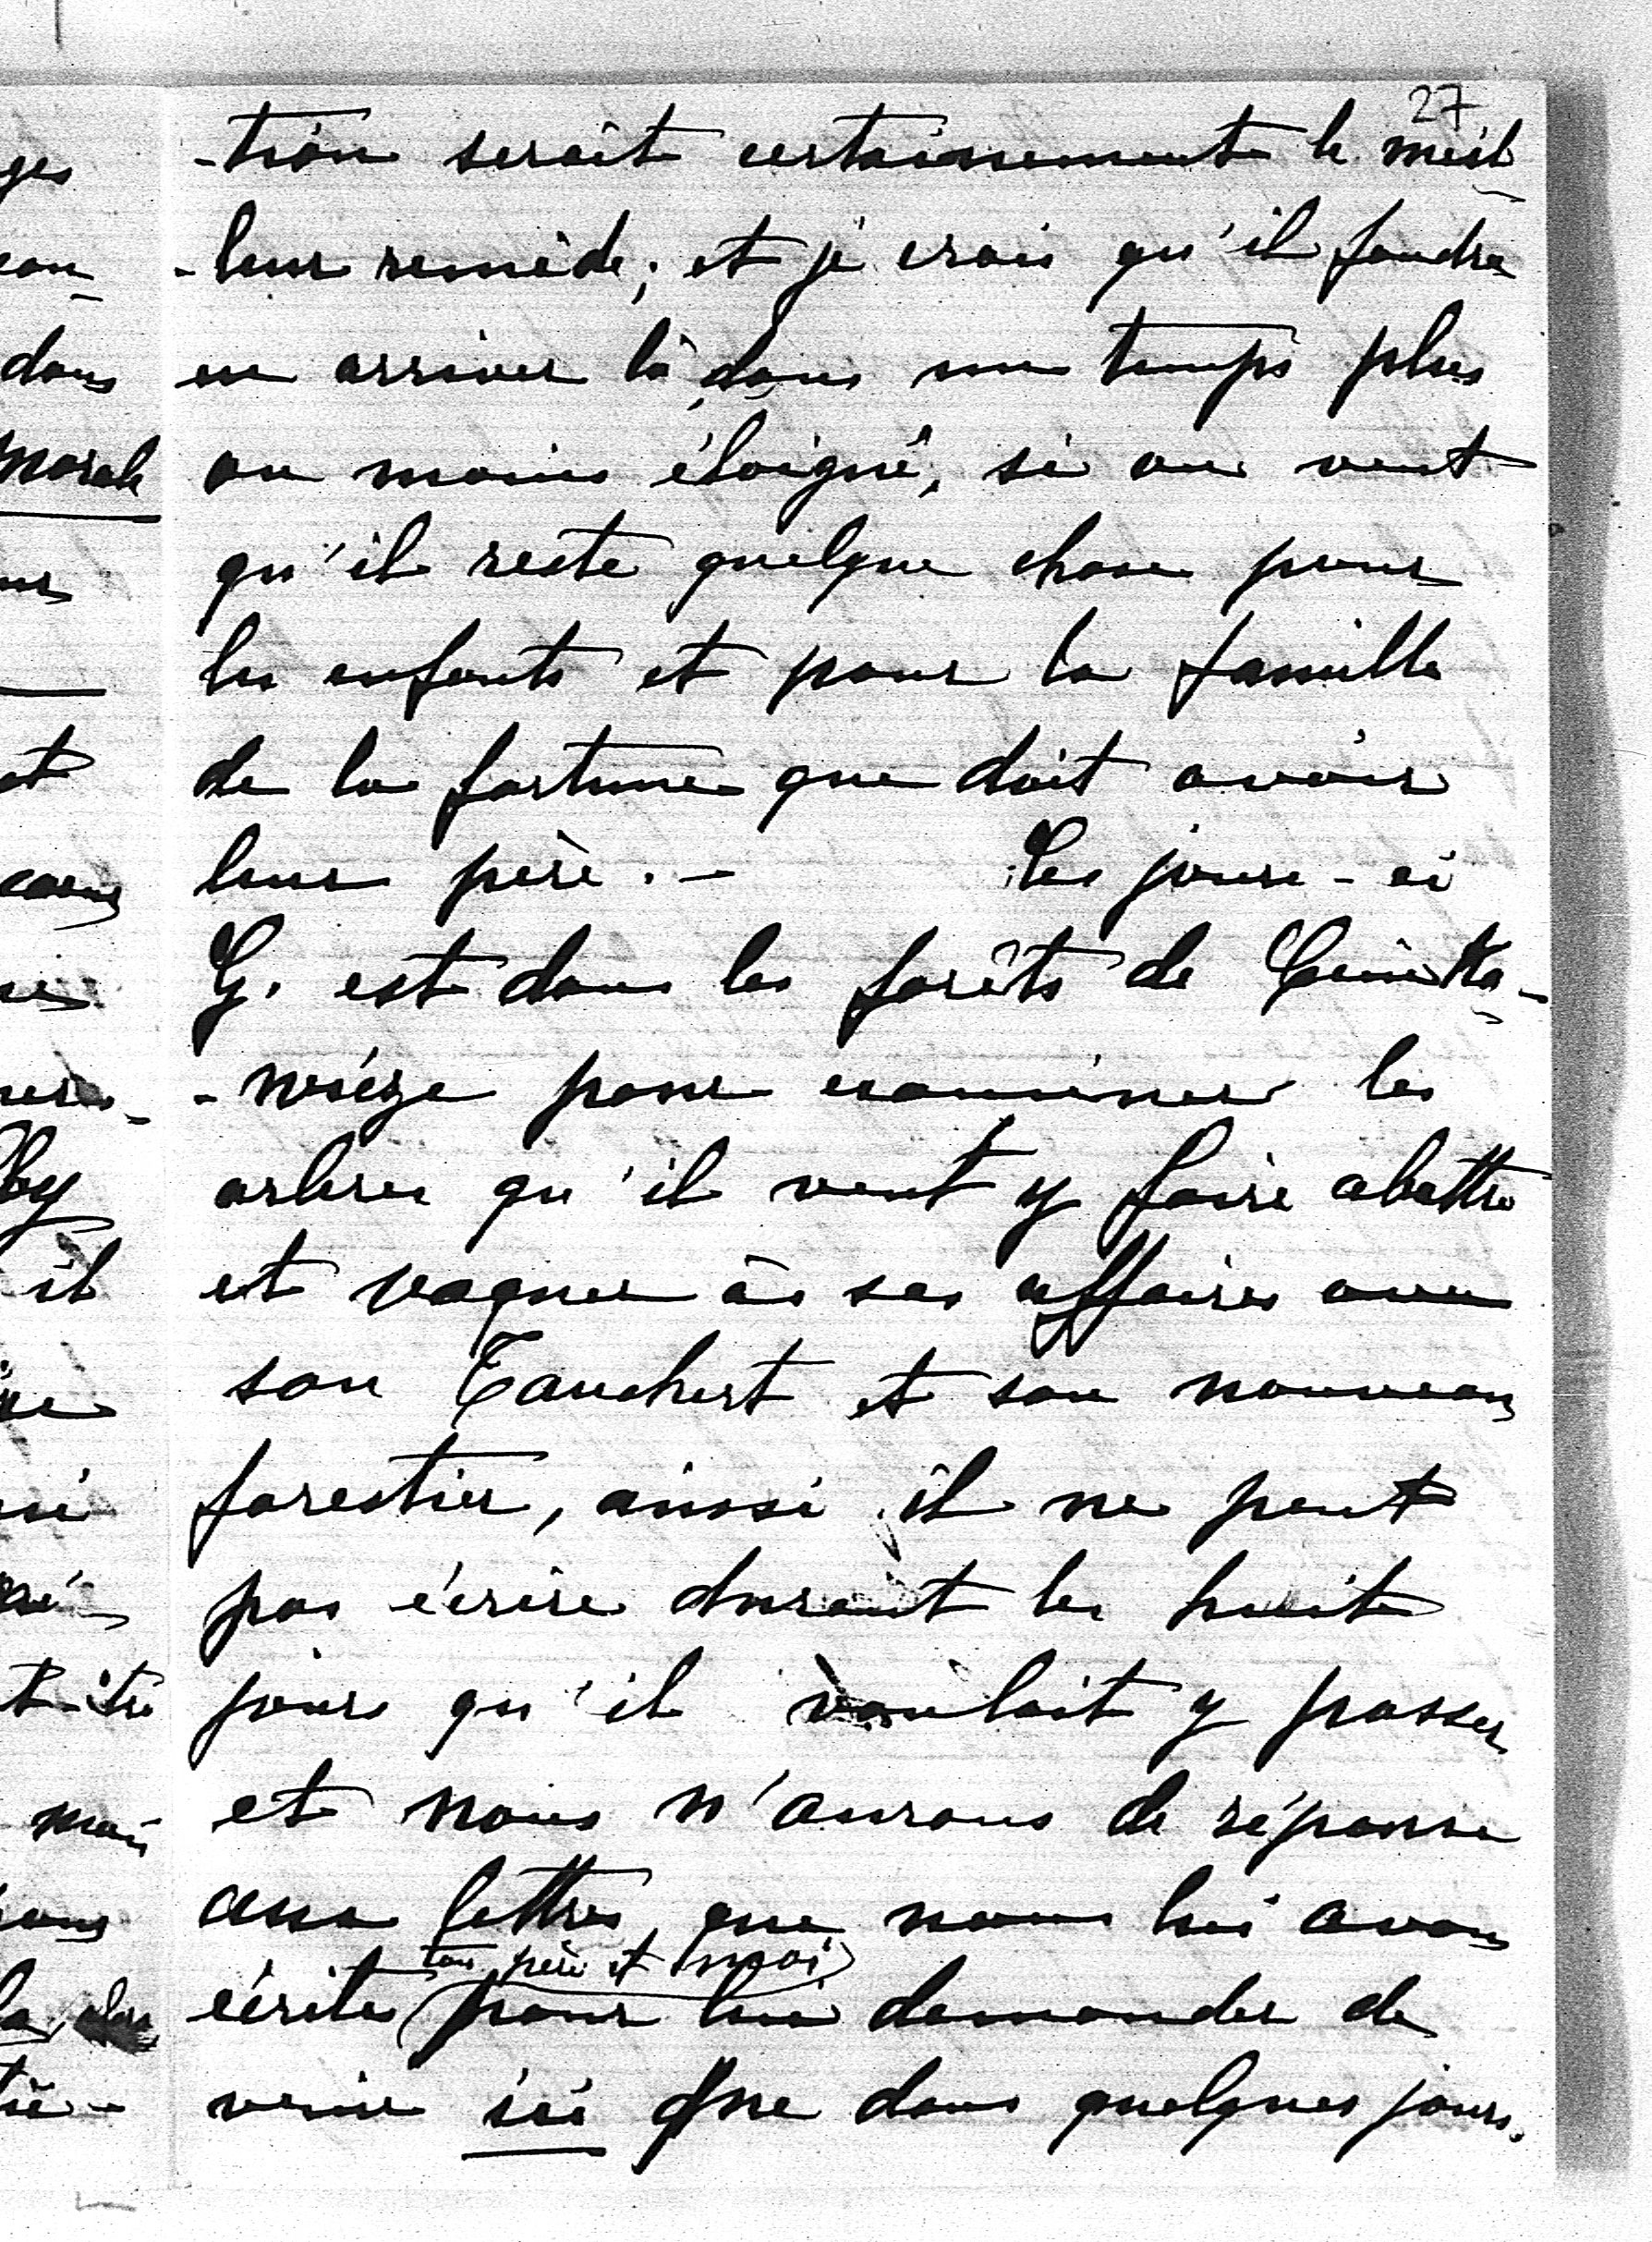 27
-tion serait certainement le meil
-leur remède; et je crois qu'il faudra
en arriver là dans un temps plus
ou moins éloigné, si on veut
qu'il reste quelque chose pour
les enfants et pour la famille
de la fortune que doit avoir
leur père. - Ces jours-ci
G. est dans les forêts de
pour examiner les
arbres qu'il veut y faire abattre
et vaquer à ses affaires avec
son Tauchert et son nouveau
forestier, aussi il ne peut
pas écrire durant les huit
jours qu'il voulait y passer
et nous n'aurons de réponse
aux lettres, que nous lui avons
ton père et moi
écrites pour lui demander de
venir ici que dans quelques jours.
ges
dans
morale
et
by
il
si
mais